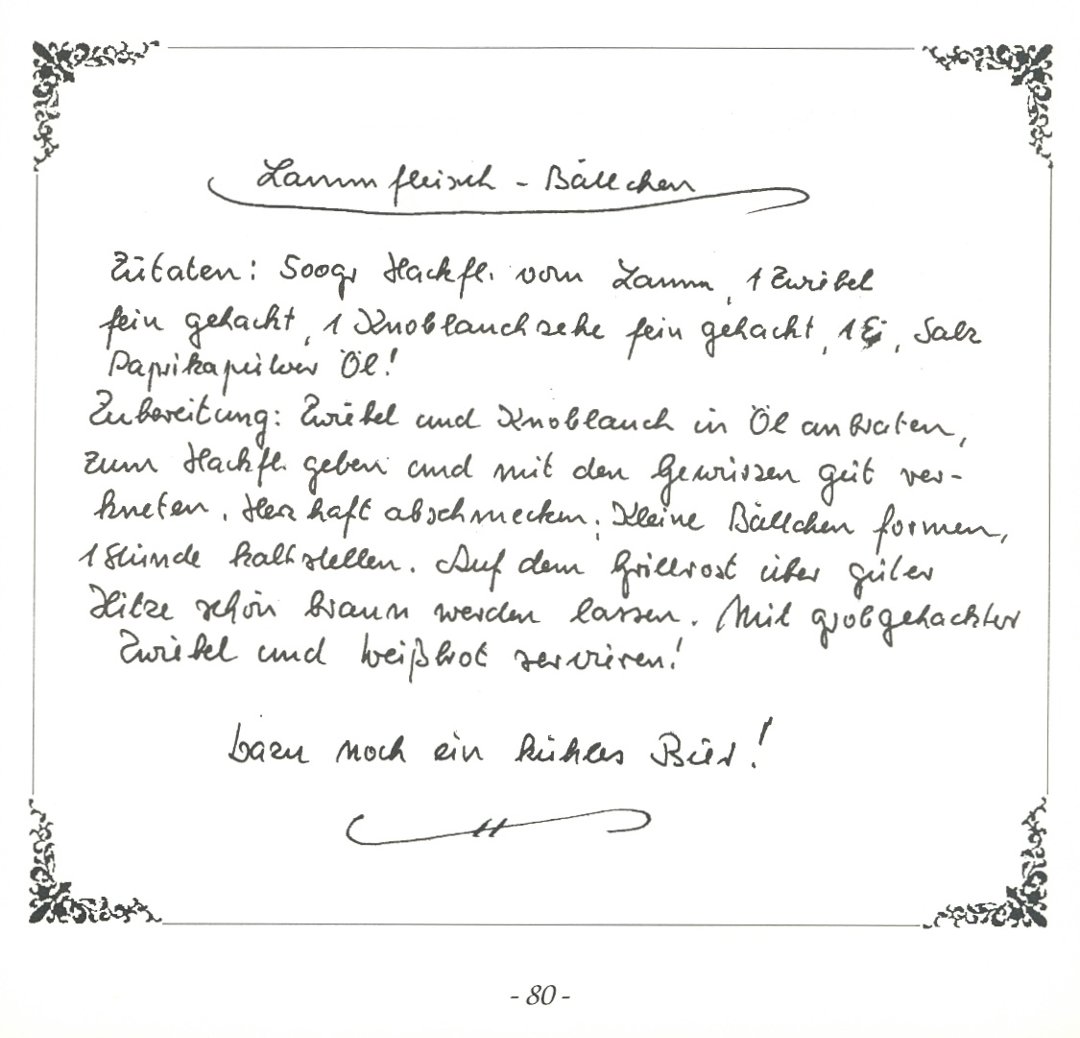 Lammfleisch - Bällchen
Zutaten: 500gr Hackfl. vom Lamm, 1 Zwiebel
fein gehackt, 1 Knoblauchzehe fein gehackt, 1 Ei, Salz
Paprikapulver Öl!
Zubereitung: Zwiebel und Knoblauch in Öl anbraten,
zum Hackfl. geben und mit den Gewürzen gut ver-
kneten. Herzhaft abschmecken. Kleine Bällchen formen,
1 Stunde kaltstellen. Auf dem Grillrost über guter
Hitze schön braun werden lassen. Mit grobgehackter
Zwiebel und Weißbrot servieren!
Dazu noch ein kühles Bier!
- 80 -